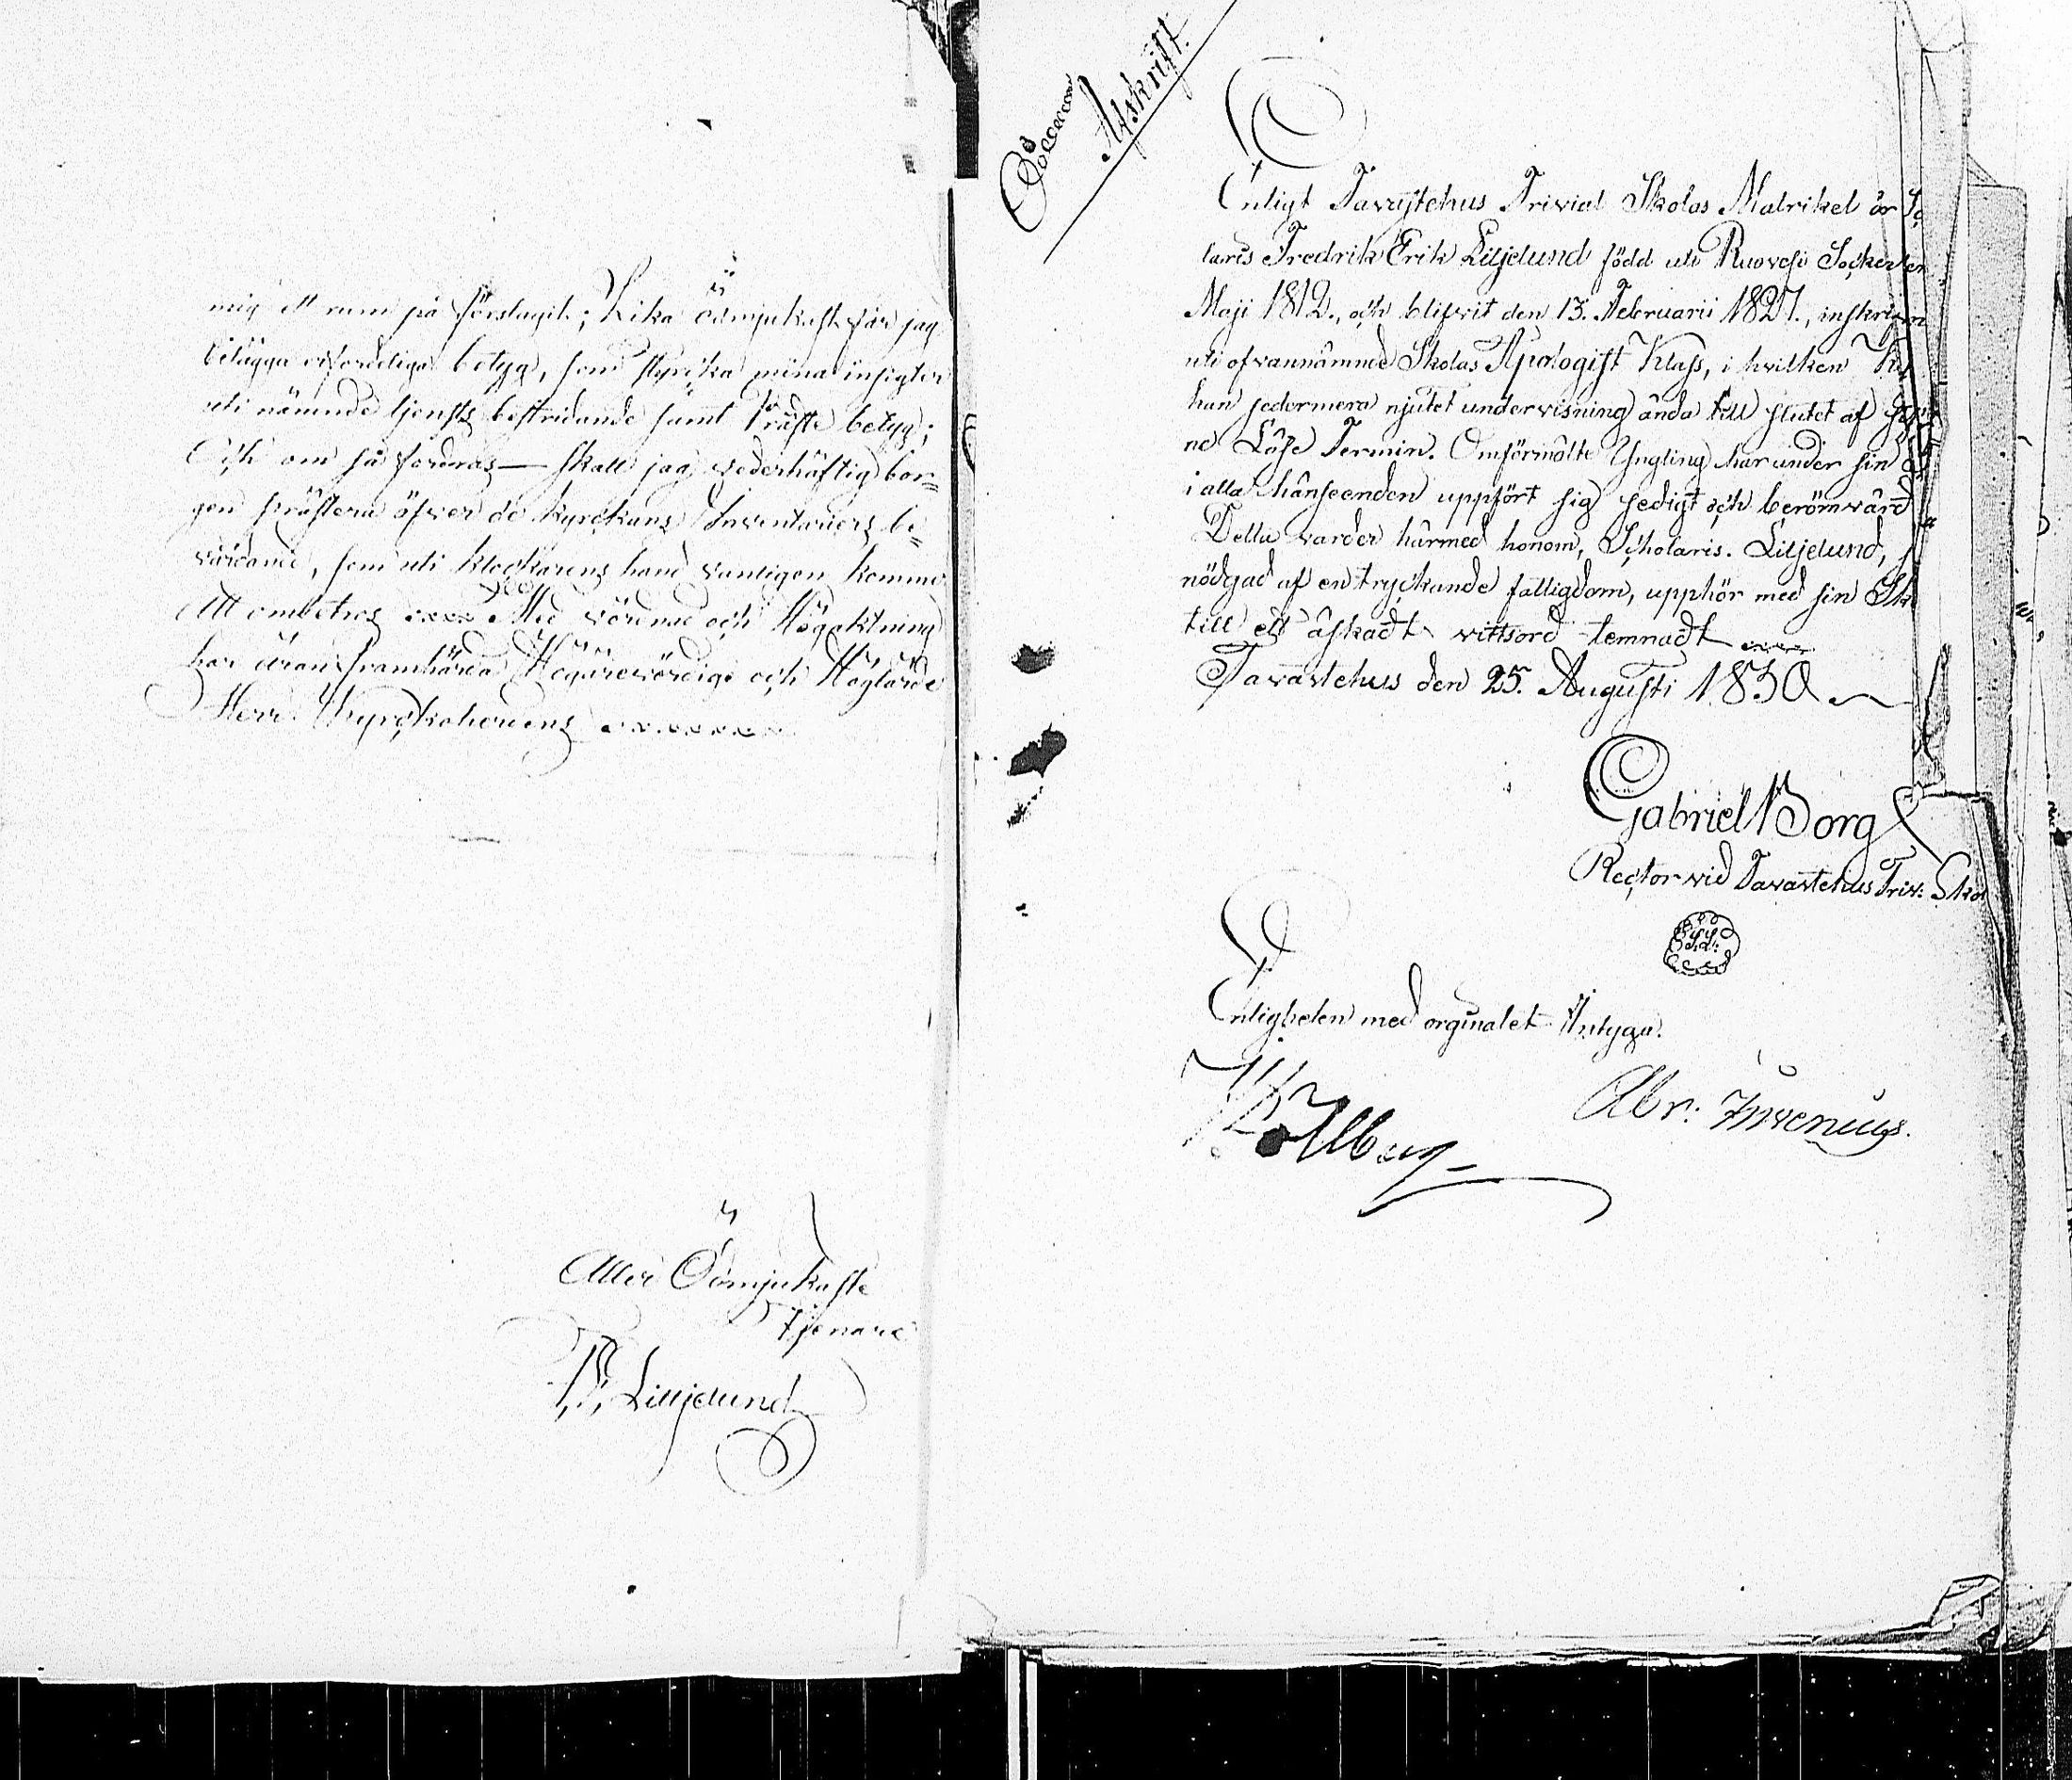 mig ett rum på förslagit; Lika ödmjukast får jag
bilägga erforderliga betyg, som styrcka mina insigter
uti nämnde tjensts bestridande samt Präste betyg;
Och om så fordras — skall jag vederhäftig bor=
gen præstera öfver de Kyrckans Inventariers be=
vårdande, som uti klockarens hand vanligen komma
Att ombetros Med vördnad och Högaktning
har äran framhärda Högärevördige och Höglärde
Herr Kyrckoherdens
Aller Ödmjukaste
Tjenare
F. Lilljelund
Afskrift.
Enligt Tavastehus Trivial Skolas Matrikel är Scho
laris Fredrik Erik Liljelund född uti Ruovesi Socken den
Maji 1812., och blifvit den 13. Februarii 1827., inskrifven
uti ofvannämnde Skolas Apologist Klass, i hvilken
han sedermera njutet undervisning ända till slutet af
ne Läse Termin. Omförmälte Yngling har under sin
i alla hänseenden uppfört sig sedigt och berömvärdt
Detta varder härmed honom, Scholaris. Liljelund,
nödgad af en tryckande fattigdom, upphör med sin
till ett äskadt vittsord lemnadt
Tavastehus den 25. Augusti 1830
Gabriel Borg
Rector vid Tavastehus Triv: Skol
Enligheten med orginalet Intyga.
Abr: Invenius.